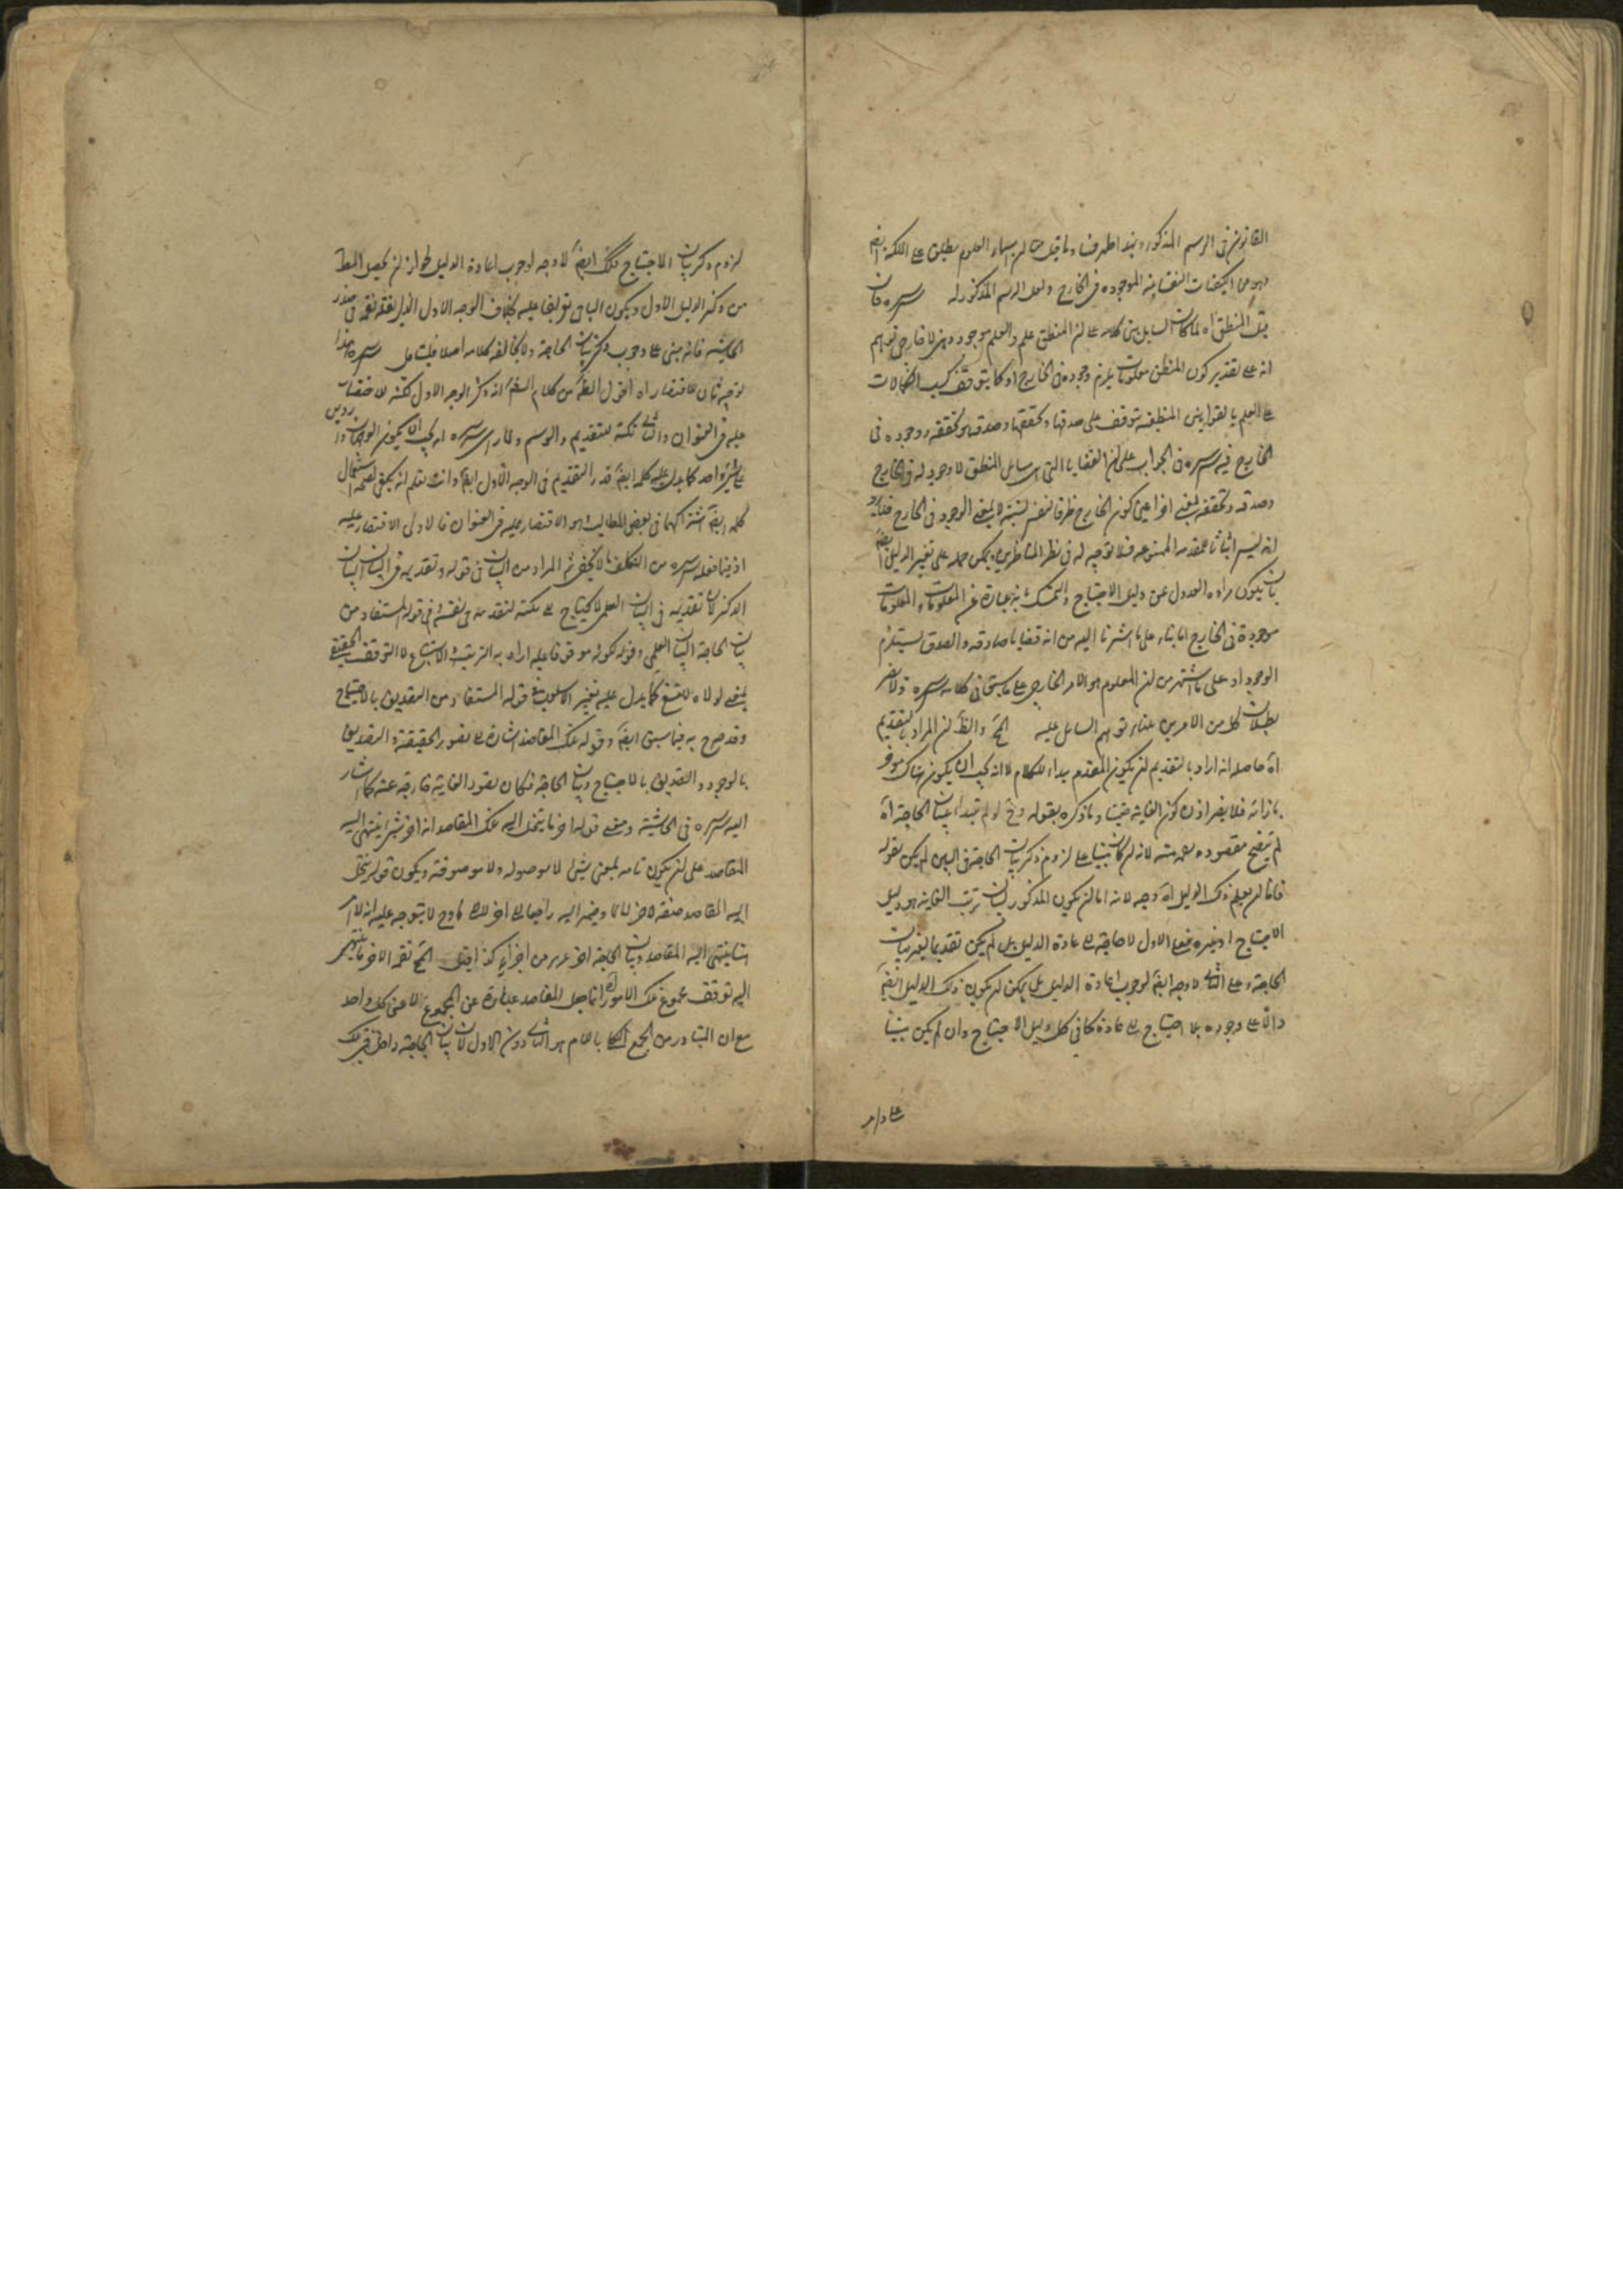 القانون في الرسم المذكور وبهذا ظهر فساد ما قيل من ان اسماء العلوم يطلق على الملكة ايضا
وهو من الكيفيات النفسانية الموجودة في الخارج ولعل الرسم المذكور له سره فان
قيل المنطق اه لما كان السايل بنى كلامه على ان المنطق علم والعلم موجود ذهني لا خارجي توهم
انه على تقدير كون المنطق معلومات يلزم وجوده في الخارج او كما يتوقف كسب الكمالات
على العلم بالقوانين المنطقية يتوقف على صدقها وتحققها وصدقه وتحققه ووجوده في
الخارج فنبه سره في الجواب على ان القضايا التي هي مسائل المنطق لا وجود له في الخارج
وصدقه وتحققه بمعنى آخر اعني كون الخارج ظرفا لنفس النسبة لا بمعنى الوجود في الخارج فلا يرد
انه ليس اثباتا للمقدمة الممنوعة فلا توجيه له في نظر المناظرين ويمكن حمله على تغيير الدليل ايضا
بان يكون مراده العدول عن دليل الاحتياج والتمسك بانه عبارة عن المعلومات والمعلومات
موجودة في الخارج اما بناء على ما اشرنا اليه من انه قضايا صادقة والصدق يستلزم
الوجود او على ما اشتهر من ان المعلوم هو الامر الخارجي على ما سيجئ في كلامه سره ولا يضر
بطلان كل من الامرين بناء توهم السائل عليه الخ والظ ان المراد بالتقديم
اه حاصله انه اراد بالتقديم ان يكون المقدم مبدأ للكلام لا انه يجب ان يكون هناك مؤخر
بازائه فلا يضر اذن كون الغاية وما ذكره بقوله وح لو لم يبدأ ببيان الحاجة اه
لم يتضح مقصوده لانه ان كان مبنيا على لزوم ذكر بيان الحاجة في البين لم يكن لقوله
فاما ان يعلم ذلك الدليل اه وجه لانه اما ان يكون المذكور لبيان ترتب الغاية هو دليل
الاحتياج او غيره فعلى الاول لا حاجة الى اعادة الدليل بل لم يكن تقديما لغير بيان
الحاجة وعلى الثاني لا وجه ايضا لوجوب اعادة الدليل بل يمكن ان يكون ذلك الدليل ايضا
دالا على وجوده بلا احتياج الى اعادة كما في كل دليل الاحتياج وان لم يكن مبنيا
على لزوم
لزوم ذكر بيان الاحتياج هناك ايضا لا وجه لوجوب اعادة الدليل لجواز ان يحصل المط
من ذكر الدليل الاول ويكون الباقي موقوفا عليه بخلاف الوجه الاول الذي نقله في صدر
الحاشية فانه مبني على وجوب ذكر بيان الحاجة ولا يخالفه كلامه اصلا فليتامل سره هذا
توجيه ثان للاقتصار اه اقول الظ من كلام الش انه ذكر الوجه الاول نكتة للاختصار
عليه في العنوان والثاني نكتة للتقديم والرسم ولما رأى سره انه يجب ان يكون الوجهان واردين
على شيء واحد كما يدل عليه كلمة ايضا قدر التقديم في الوجه الاول ايضا وانت تعلم انه يكفي لصحة استعمال
كلمة ايضا اشتراكهما في بعض المطالب وهو الاقتصار عليه في العنوان فالاولى الاقتصار عليه
اذ فيما فعله سره من التكلف ما لا يخفى ثم المراد من البيان في قوله وتقديمه في البيان البيان
الذكري لان تقديمه في البيان العلمي لا يحتاج الى نكتة لتقدمه في نفسه وفي قوله المستفاد من
بيان الحاجة البيان العلمي وقوله كونه موقوفا عليه اراد به الترتب والاستتباع لا التوقف الحقيقي
بمعنى لولاه لامتنع كما يدل عليه تغيير الاسلوب في قوله المستفاد من التصديق بالاحتياج
وقد صرح به فيما سبق ايضا وقوله تلك المقاصد اشارة الى تصور الحقيقة والتصديق
بالوجود والتصديق بالاحتياج وبيان الحاجة فكان تصور الغاية خارجة عنه كما اشار
اليه سره في الحاشية ومعنى قوله آخر ما ينحل اليه تلك المقاصد انه آخر شيء ينتهي اليه
المقاصد على ان يكون تامة بمعنى شيء لا موصولة ولا موصوفة ويكون قوله ينحل
اليه المقاصد صفة لآخر لا لما وضمير اليه راجعا الى آخر لا الى ما وح لا يتوجه عليه انه لا آخر
لما ينتهي اليه المقاصد وبيان الحاجة آخر جزء من اجزاء كذا قيل الخ نعم الآخر ما ينتهي
اليه توقف مجموع تلك الامور اه انما جعل المقاصد عبارة عن المجموع لا عن كل واحد
مع ان المتبادر من الجمع المحلى باللام هو الثاني دون الاول لان بيان الحاجة داخل في تلك